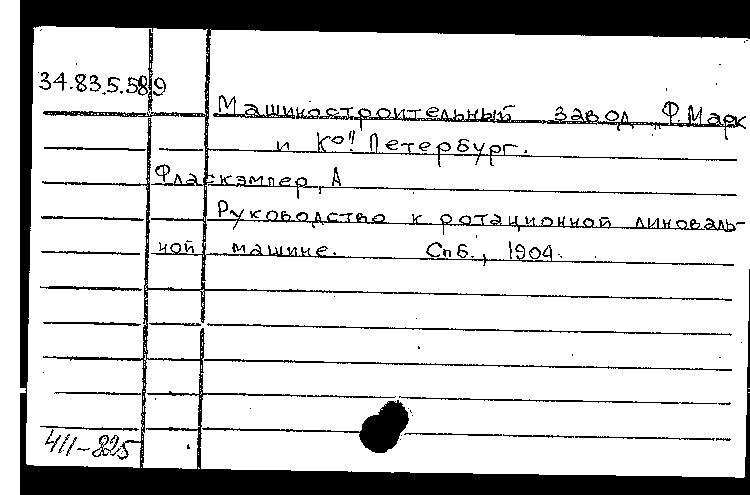 34.83.5.589
Машиностроительный завод „Ф. Марк
и Ко". Петербург.
Фласкэмпер, А
Руководство к ротационной линоваль-
ной машине. Спб., 1904.
411-825